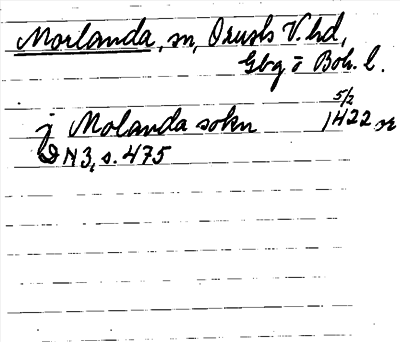 Morlanda, sn, Orusts V. hd,
Gbg o Boh. l.
j Molanda sokn 5/2 1422 or
DN 3, s. 475